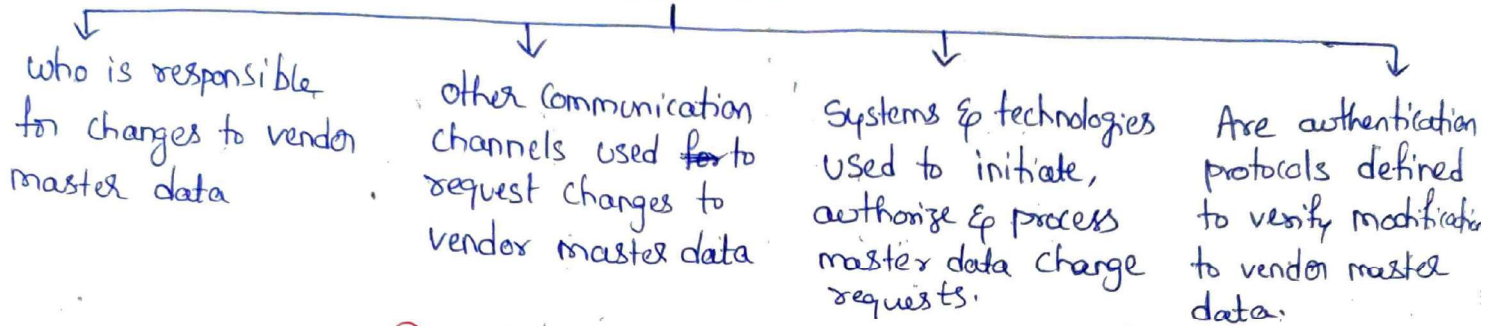 who is responsible
for changes to vendor
master data
other Communication
channels used for to
request changes to
vendor master data
Systems & technologies
used to initiate,
authorize & process
master data change
requests.
Are authentication
protocols defined
to verify modificatio
to vendor master
data.